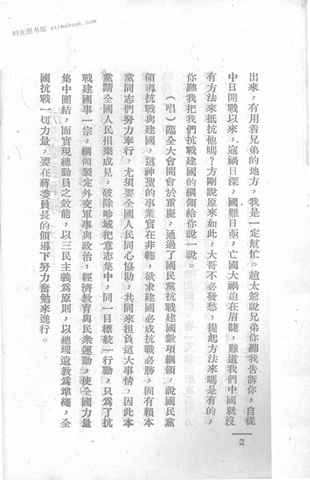 时光图书馆 etimebook.com
出來，有用著兄弟的地方，我是一定幫忙。趙太爺說兄弟你聽我告訴你，自從
中日開戰以來，寇禍日深，國難日亟，亡國大禍迫在眉睫，難道我們中國就沒
有方法來抵抗他嗎？方剛說原來如此，大哥不必發愁，提起方法來嗎是有的，
你聽我把我們抗戰建國的綱領給你說一說。
（唱）臨全大會開會於重慶，通過了國民黨抗戰建國數項綱領，說國民黨
領導抗戰與建國，這神聖的事業實在非輕，欲求建國必成抗戰必勝，固有賴本
黨同志們努力奉行，尤須要全國人民同心協助，共同來担負這大事情，因此本
黨請全國人民捐棄成見，破除畛域把意志集中，同一目標統一行動，只為了抗
戰建國事一宗，綱領製定外交軍事與政治，經濟教育與民衆運動，使全國力量
集中團結，而實現總動員之效能，以三民主義為原則，以總理遺教為準繩，全
國抗戰一切力量，要在蔣委員長的領導下努力奮勉來進行。
2